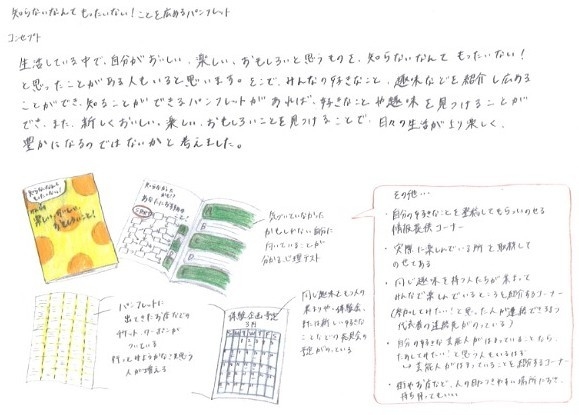 知らないなんてもったいない！ことを広めるパンフレット
コンセプト
生活している中で、自分がおいしい、楽しい、おもしろいと思うものを、知らないなんてもったいない！
と思ったことがある人もいると思います。そこで、みんなの好きなこと、趣味などを紹介し広める
ことができ、知ることができるパンフレットがあれば、好きなことや趣味を見つけることが
でき、また、新しくおいしい、楽しい、おもしろいことを見つけることで、日々の生活がより楽しく、
豊かになるのではないかと考えました。
知らないなんて
もったいない！
楽しい、おいしい、
おもしろいこと！
気づいていなかった
かもしれない自分に
向いていることが
分かる心理テスト
A
B
C
D
パンフレットに
出てきたお店などの
チケット、クーポンが
ついている
行ってみようかなと思う
人が増える
体験会予定
3月
同じ趣味をもつ人の
集まりや、体験会、
または新しい好きな
ことなどの発表会の
予定がのっている
その他…
・自分の好きなことを投稿してもらっいのせる
情報提供コーナー
・実際に楽しんでいる所を取材して
のせてある
・同じ趣味を持つ人たちが集まって
みんなで楽しんでいるところを紹介するコーナー
(参加してみたい！と思った人が連絡できるよう
代表者の連絡先がのっている)
・自分の好きな芸能人がはまっていることなら、
ためしてみたい！と思う人もいるはず
↳芸能人がはまっていることを紹介するコーナー
・街やお店など、人の目につきやすい場所におき、
持ち帰ってもいい